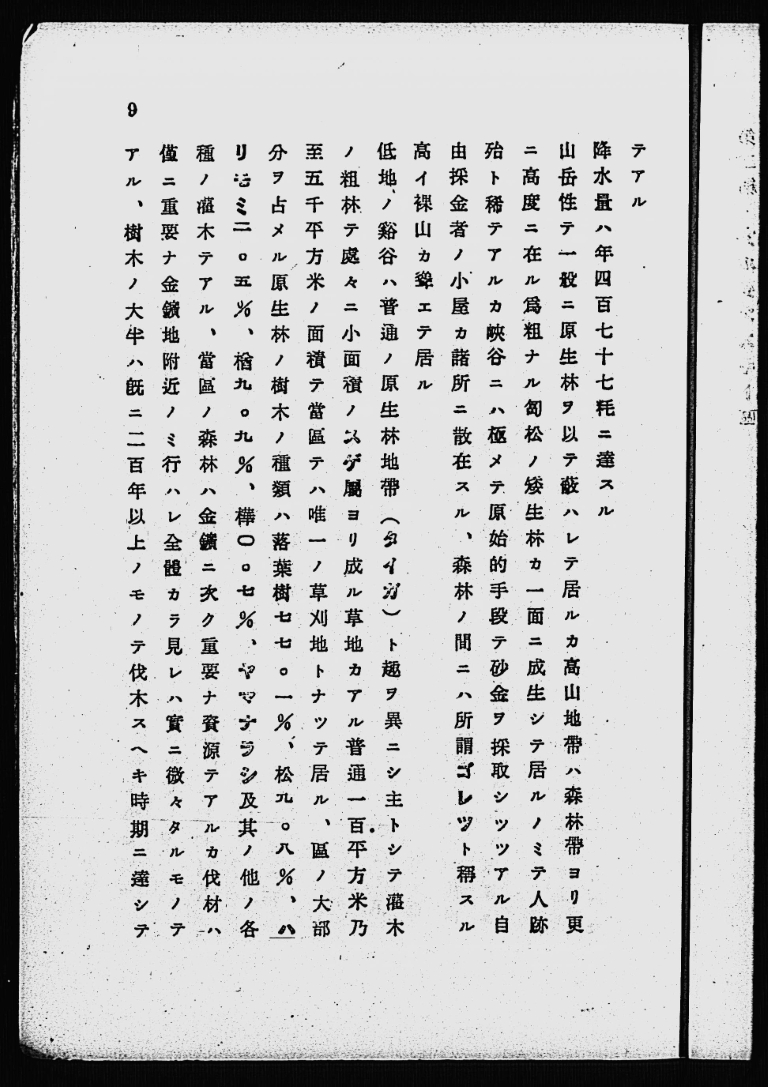 テアル
降水量ハ年四百七十七粍ニ達スル
山岳性テ一般ニ原生林ヲ以テ蔽ハレテ居ルカ高山地帶ハ森林帶ヨリ更
ニ高度ニ在ル爲粗ナル匐松ノ矮生林カ一面ニ成生シテ居ルノミテ人跡
殆ト稀テアルカ峽谷ニハ極メテ原始的手段テ砂金ヲ採取シツツアル自
由採金者ノ小屋カ諸所ニ散在スル、森林ノ間ニハ所謂ゴレツト稱スル
高イ裸山カ聳エテ居ル
低地ノ谿谷ハ普通ノ原生林地帶（タイガ）ト趣ヲ異ニシ主トシテ灌木
ノ粗林テ處々ニ小面積ノスゲ屬ヨリ成ル草地カアル普通一百平方米乃
至五千平方米ノ面積テ當區テハ唯一ノ草刈地トナツテ居ル、區ノ大部
分ヲ占メル原生林ノ樹木ノ種類ハ落葉樹七七。一％、松九。八％、ハ
リモミ二。五％、楢九。九％、樺〇。七％、ヤマナラシ及其ノ他ノ各
種ノ灌木テアル、當區ノ森林ハ金鑛ニ次ク重要ナ資源テアルカ伐材ハ
僅ニ重要ナ金鑛地附近ノミ行ハレ全體カラ見レハ實ニ微々タルモノテ
アル、樹木ノ大半ハ既ニ二百年以上ノモノテ伐木スヘキ時期ニ達シテ
9